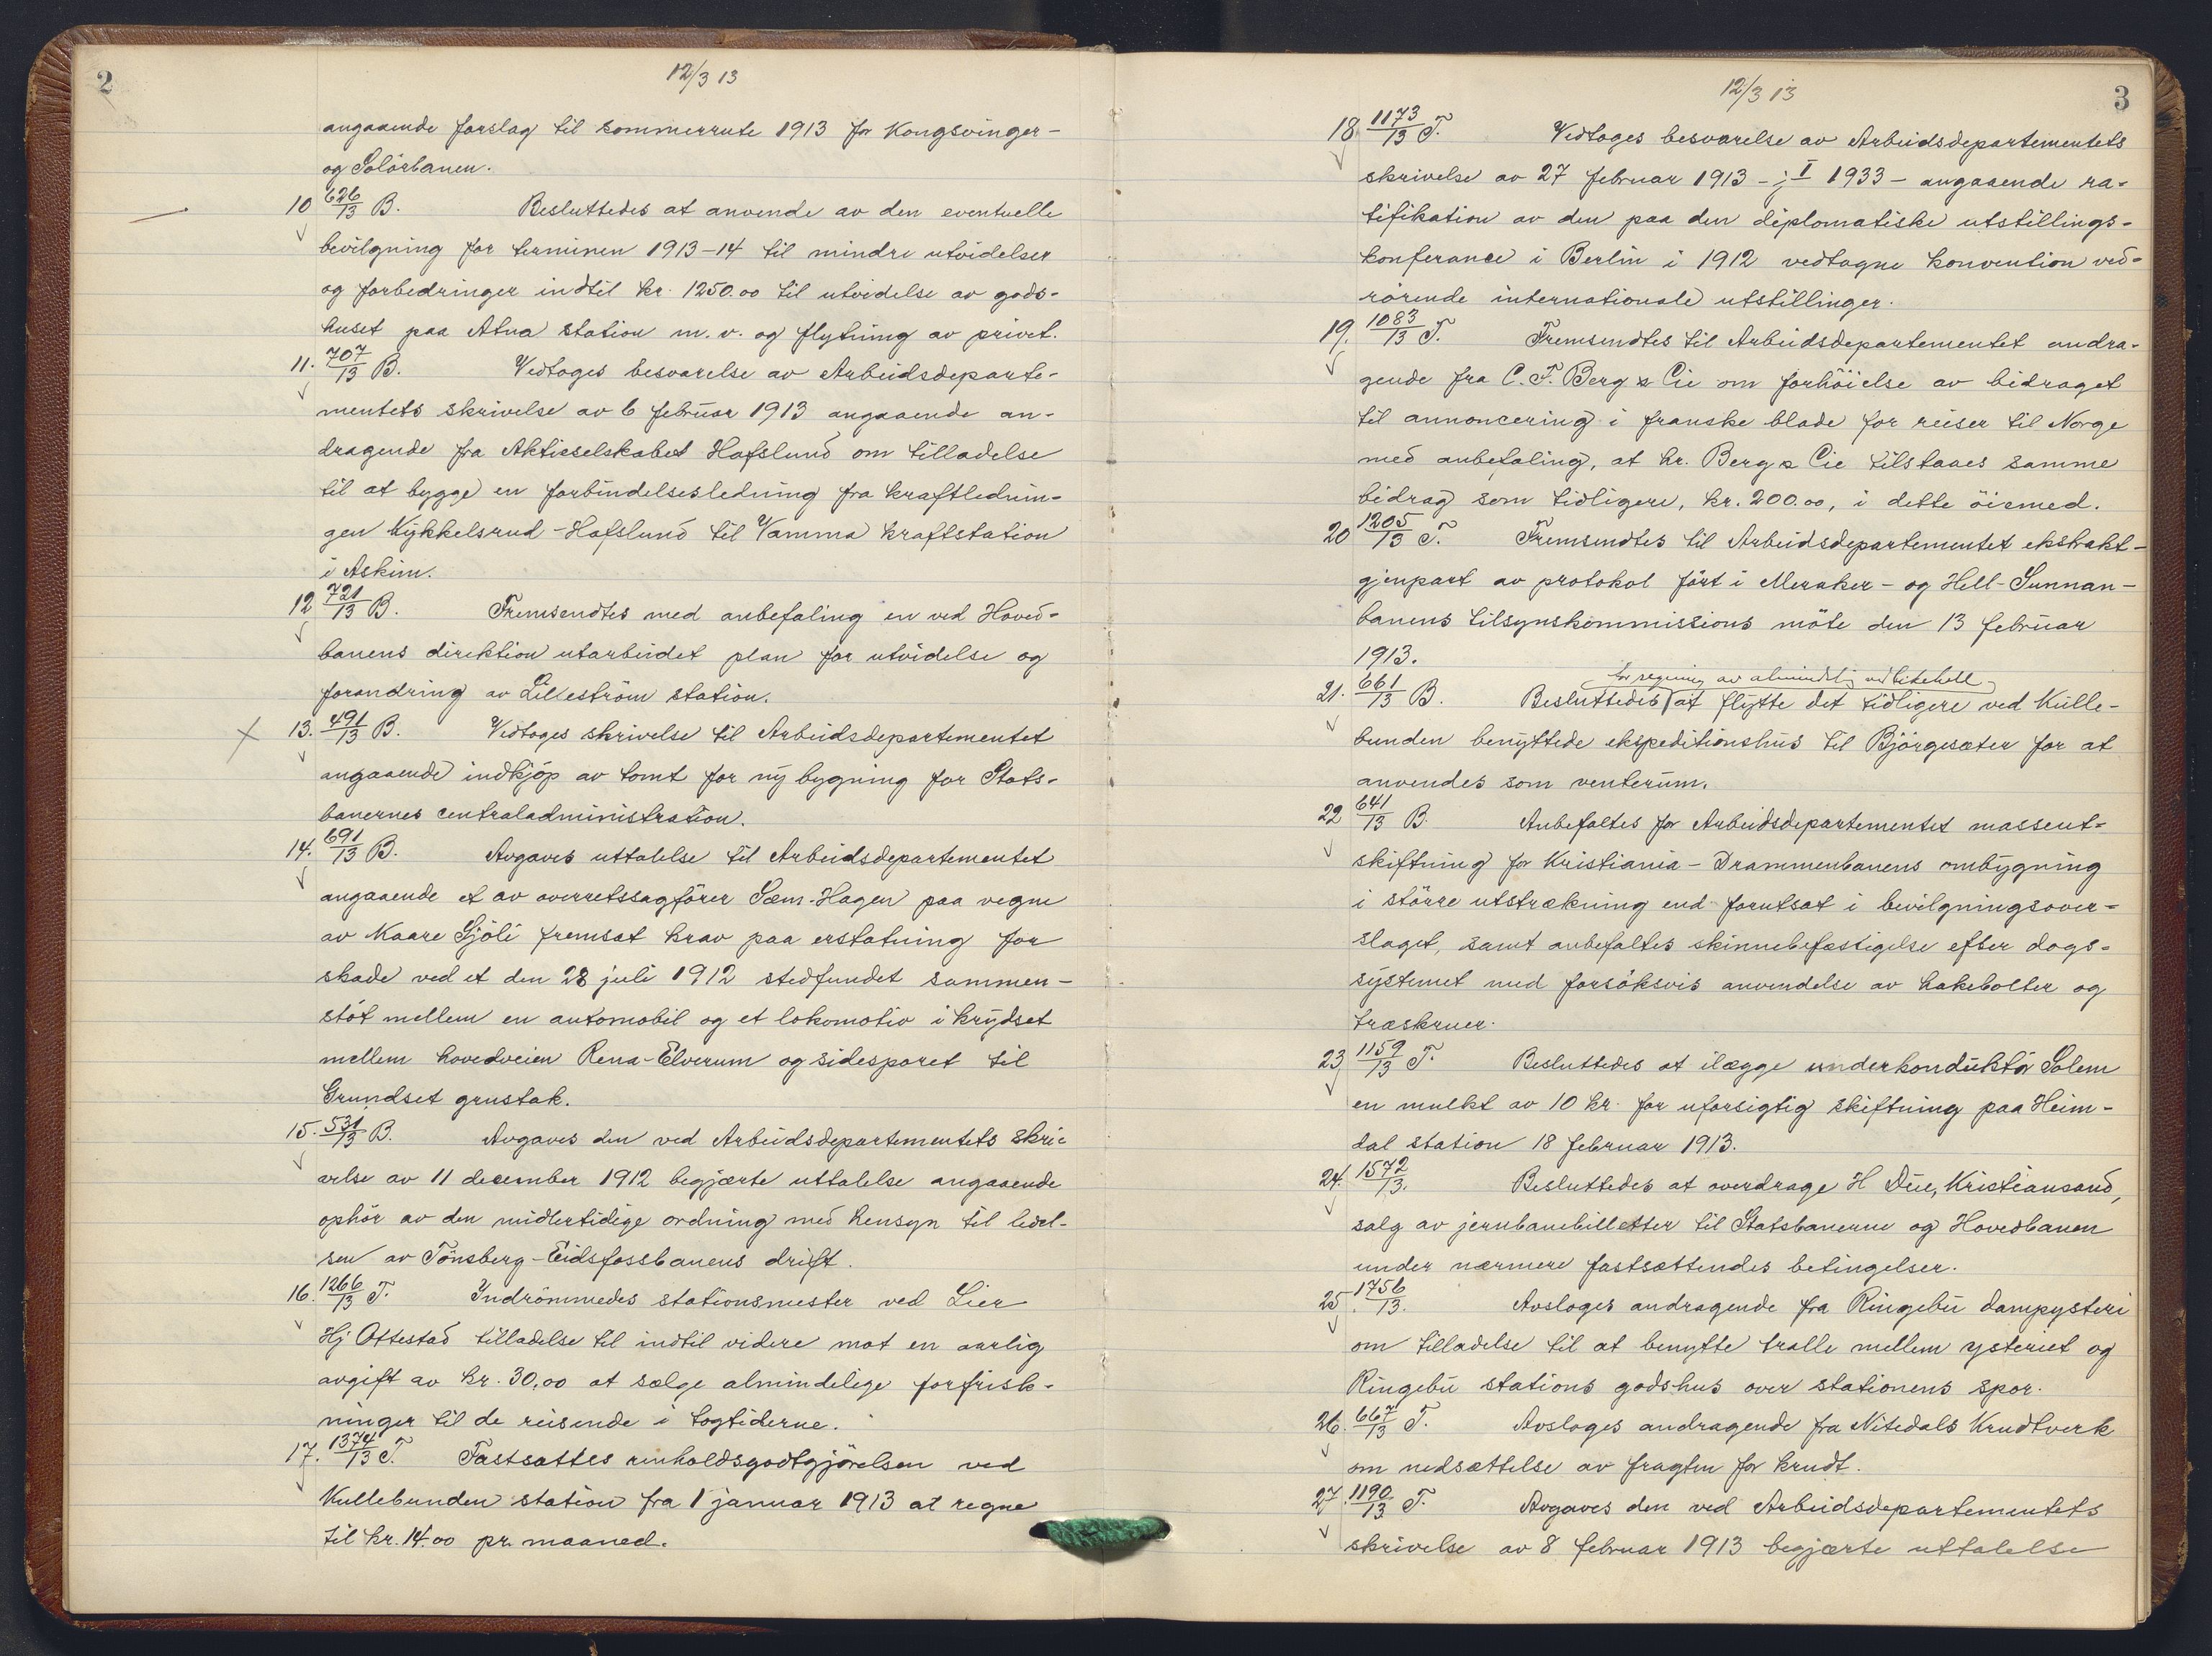 2
12/3 13
angaaende forslag til sommerrute 1913 for Kongsvinger-
og Solörbanen.
10 626/13 B. Besluttedes at anvende av den eventuelle
bevilgning for terminen 1913-14 til mindre utvidelser
og forbedringer indtil kr. 1250.00 til utvidelse av gods-
huset paa Atna station m.v. og flytning av privet.
11. 707/13 B. Vedtoges besvarelse av Arbeidsdeparte-
mentets skrivelse av 6 februar 1913 angaaende an-
dragende fra Aktieselskabet Hafslund om tilladelse
til at bygge en forbindelsesledning fra kraftlednin-
gen Kykkelsrud-Hafslund til Vamma kraftstation
i Askim.
12 721/13 B. Fremsendtes med anbefaling en ved Hoved-
banens direktion utarbeidet plan for utvidelse og
forandring av Lilleström station.
13. 491/13 B. Vedtoges skrivelse til Arbeidsdepartementet
angaaende indkjöp av tomt for ny bygning for Stats-
banernes centraladministration.
14. 691/13 B. Avgaves uttalelse til Arbeidsdepartementet
angaaende et av overretssagförer Sæm-Hagen paa vegne
av Kaare Sjöli fremsat krav paa erstatning for
skade ved et den 28 juli 1912 stedfundet sammen-
stöt mellem en automobil og et lokomotiv i krydset
mellem hovedveien Rena-Elverum og sidesporet til
Grundset grustak.
15. 531/13 B. Avgaves den ved Arbeidsdepartementets skri-
velse av 11 december 1912 begjærte uttalelse angaaende
ophör av den midlertidige ordning med hensyn til ledel-
sen av Tönsberg-Eidsfossbanens drift.
16. 1266/13 T. Indrömmedes stationsmester ved Lier
Hj Ottestad tilladelse til indtil videre mot en aarlig
avgift av kr. 30,00 at sælge almindelige forfrisk-
ninger til de reisende i togtiderne.
17. 1374/13 T. Fastsattes renholdsgodtgjörelsen ved
Kullebunden station fra 1 januar 1913 at regne
til kr. 14.00 pr. maaned.
3
12/3 13
18. 1173/13 T. Vedtoges besvarelse av Arbeidsdepartementets
skrivelse av 27 februar 1913 - j I 1933 - angaaende ra-
tifikation av den paa den diplomatiske utstillings-
konferance i Berlin i 1912 vedtagne konvention ved-
rörende internationale utstillinger.
19. 1083/13 T. Fremsendtes til Arbeidsdepartementet andra-
gende fra C. F. Berg & Cie om forhöielse av bidraget
til annoncering i franske blade for reiser til Norge
med anbefaling, at hr. Berg & Cie tilstaaes samme
bidrag som tidligere, kr. 200.00, i dette öiemed.
20 1205/13 T. Fremsendtes til Arbeidsdepartementet ekstrakt-
gjenpart av protokol fört i Meraker- og Hell-Sunnan-
banens tilsynskommissions möte den 13 februar
1913.
for regning av almindelig vedlikehold
21. 661/13 B. Besluttedes at flytte det tidligere ved Kulle-
bunden benyttede ekspeditionshus til Björgesæter for at
anvendes som venterum.
22 641/13 B. Anbefaltes for Arbeidsdepartementet massent-
skiftning for Kristiania-Drammenbanens ombygning
i större utstrækning end forutsat i bevilgningsover-
slaget, samt anbefaltes skinnebefæstigelse efter dags-
systemet med forsöksvis anvendelse av hakebolter og
træskruer.
23 1159/13 T. Besluttedes at ilægge underkonduktör Solem
en mulkt av 10 kr. for uforsigtig skiftning paa Heim-
dal station 18 februar 1913.
24. 1572/13. Besluttedes at overdrage H Due, Kristiansand,
salg av jernbanebilletter til Statsbanerne og Hovedbanen
under nærmere fastsættendes betingelser.
25 1756/13. Avsloges andragende fra Ringebu dampysteri
om tilladelse til at benytte tralle mellem ysteriet og
Ringebu stations godshus over stationens spor.
26. 667/13 T. Avsloges andragende fra Nitedals Krudtverk
om nedsættelse av fragten for krudt.
27. 1190/13 T. Avgaves den ved Arbeidsdepartementets
skrivelse av 8 februar 1913 begjærte uttalelse